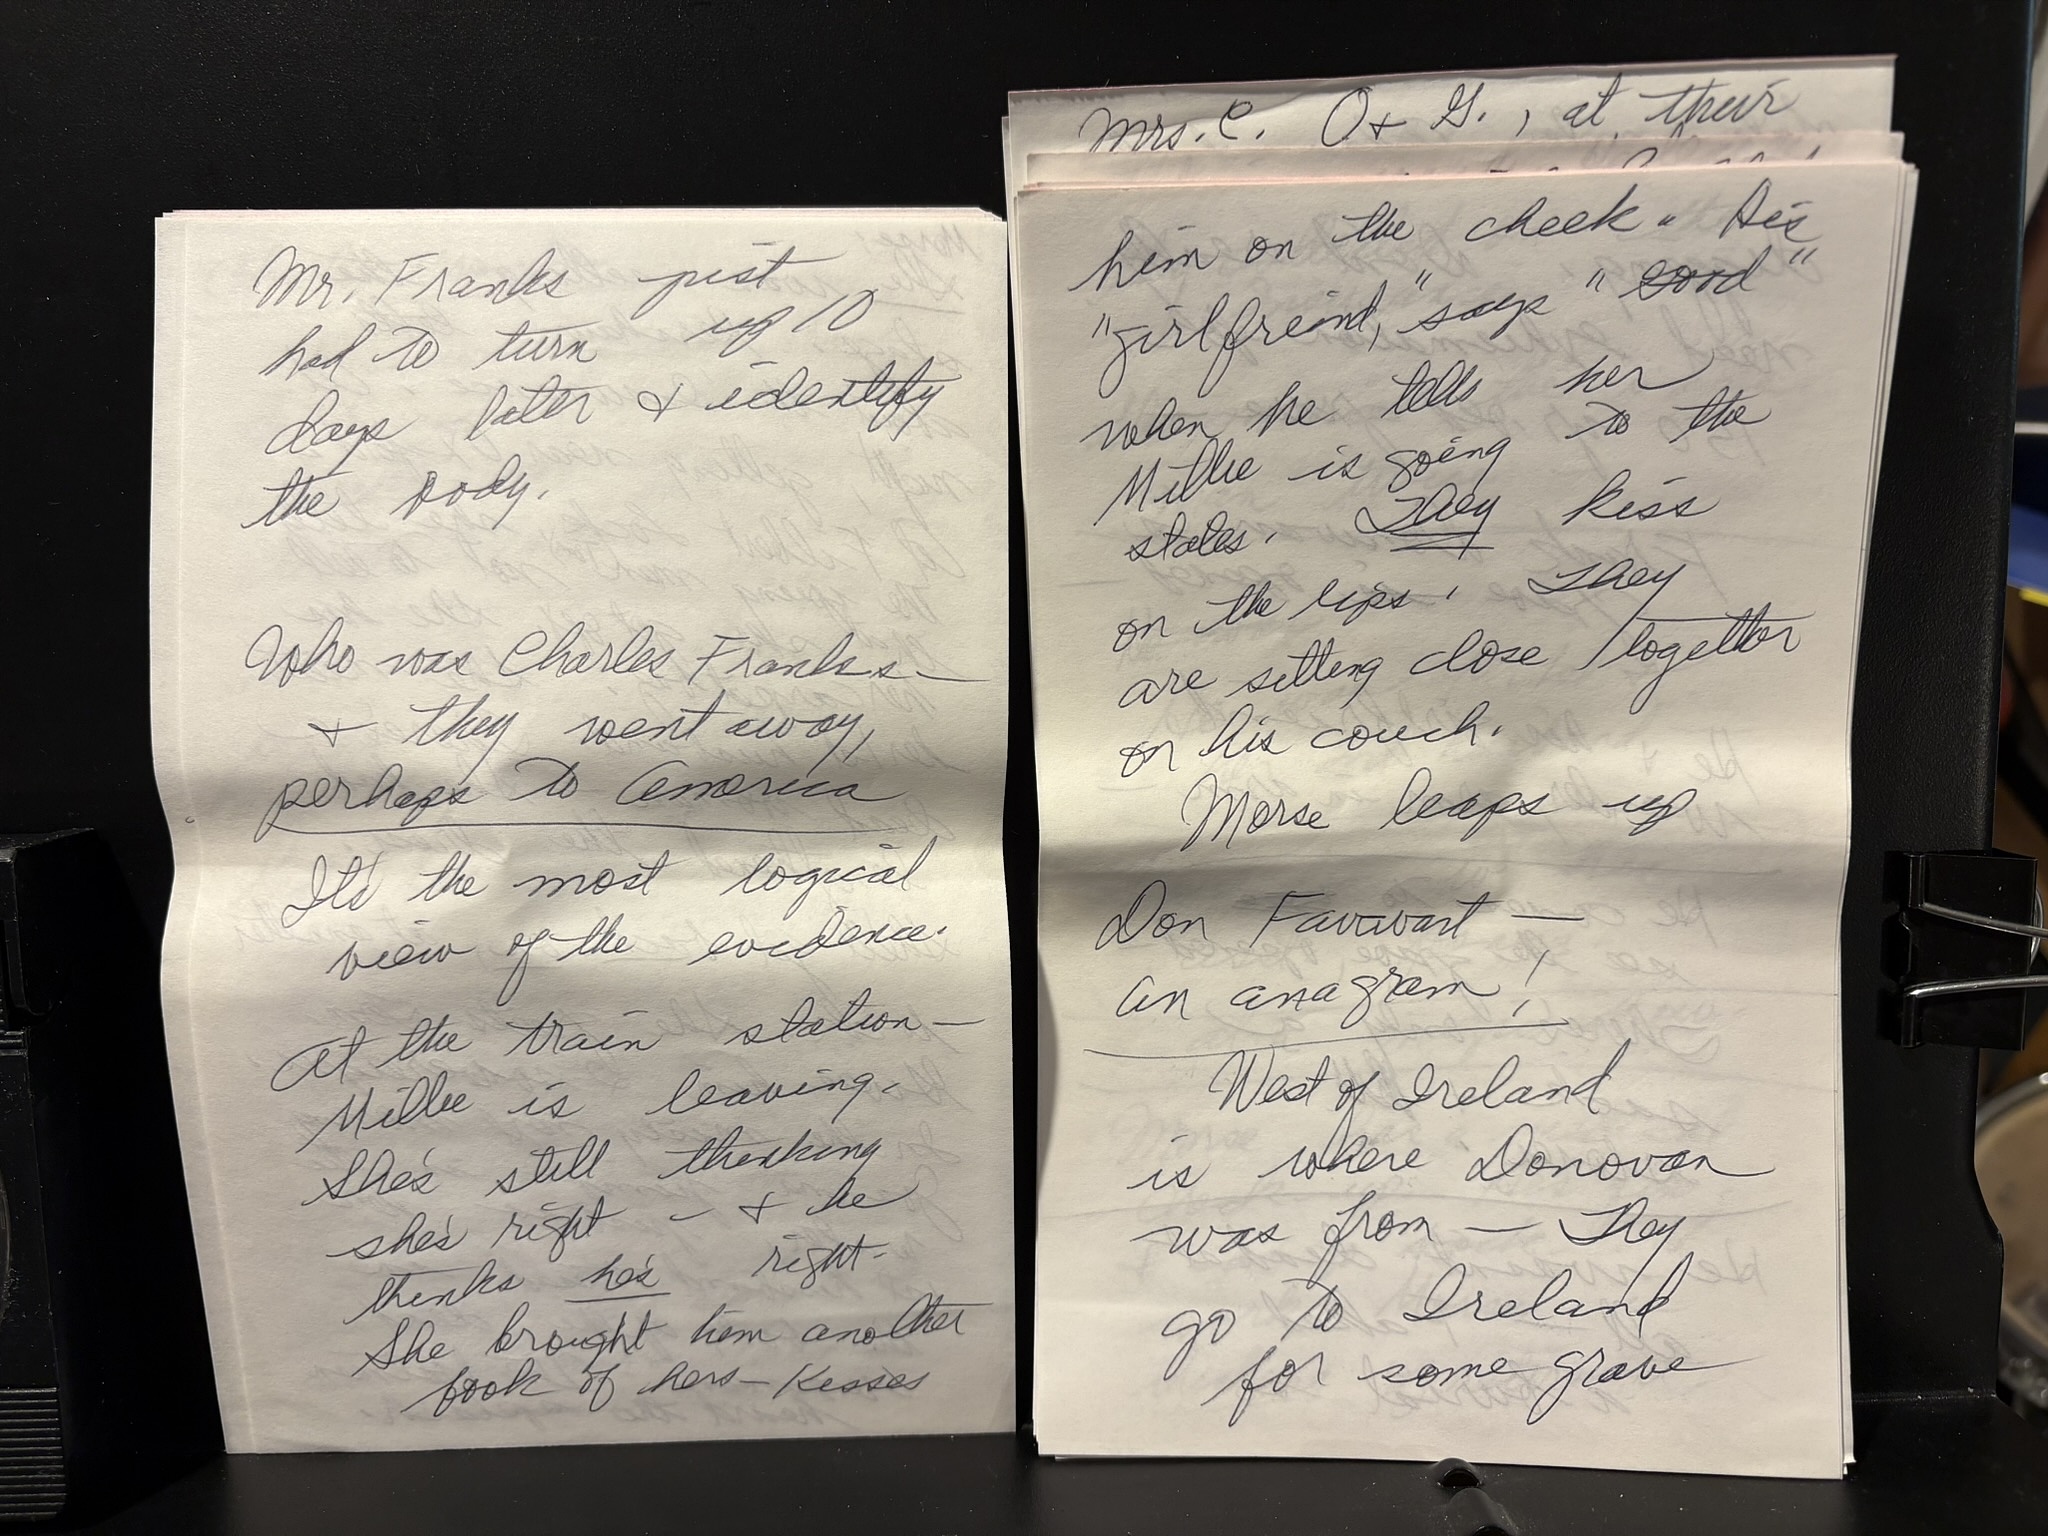 Mr. Franks just
had to turn up 10
days later & identify
the body.
Who was Charles Franks –
& they went away,
perhaps to America
It's the most logical
view of the evidence.
At the train station –
Millie is leaving.
She's still thinking
she's right – & he
thinks he's right.
She brought him another
book of hers – Kisses
Mrs. C. O & G., at their
him on the cheek. His
"girlfreind," says "Good"
when he tells her
Millie is going to the
states. They kiss
on the lips. They
are sitting close together
on his couch.
Morse leaps up
Don Favavart –
an anagram!
West of Ireland
is where Donovan
was from – They
go to Ireland
for some grave